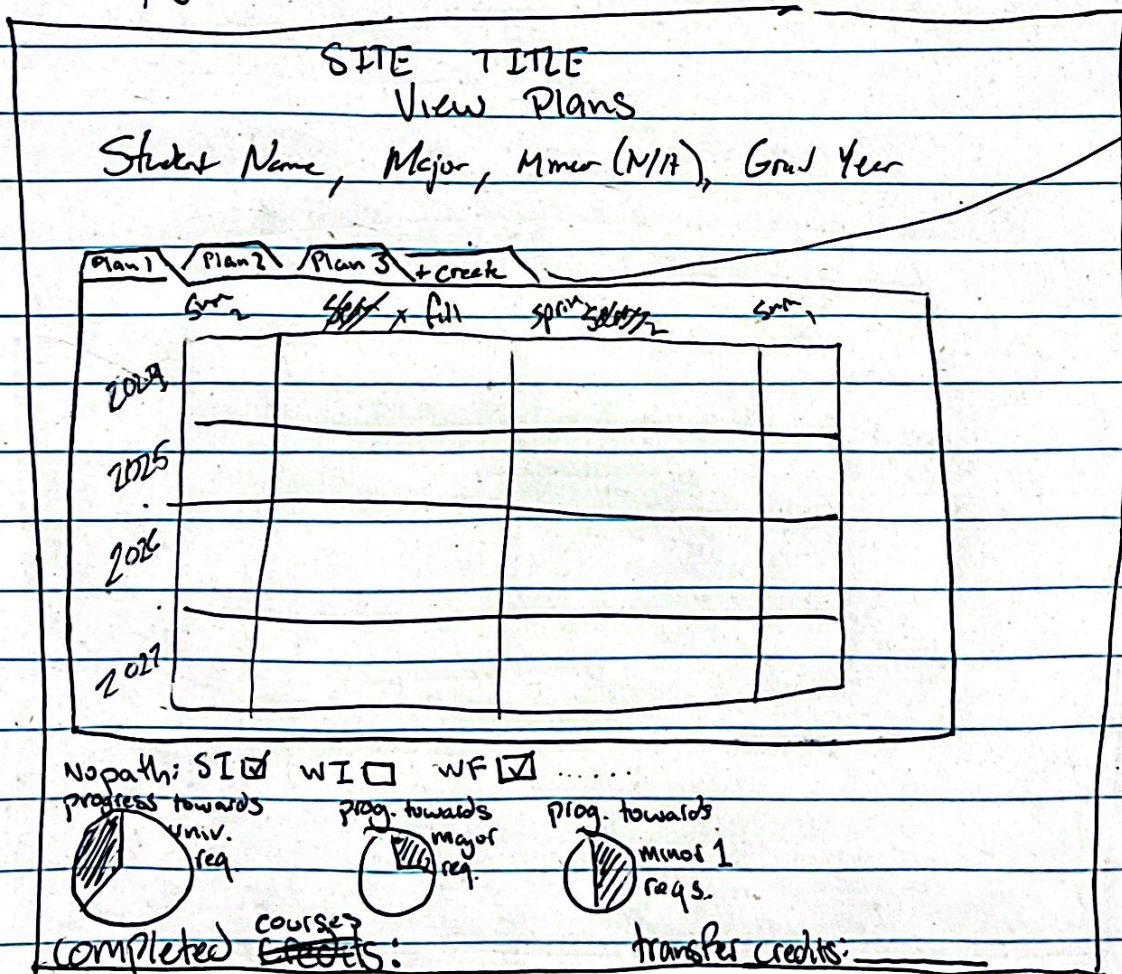 SITE TITLE
View Plans
Student Name, Major, Minor (N/A), Grad Year
Plan 1 Plan 2 Plan 3 + create
sum 2 fall spring sum 1
2024
2025
2026
2027
Nupath: SI ☑ WI ☐ WF ☑ ......
progress towards univ. req.
prog. towards major req.
prog. towards minor 1 reqs.
completed courses:
transfer credits: